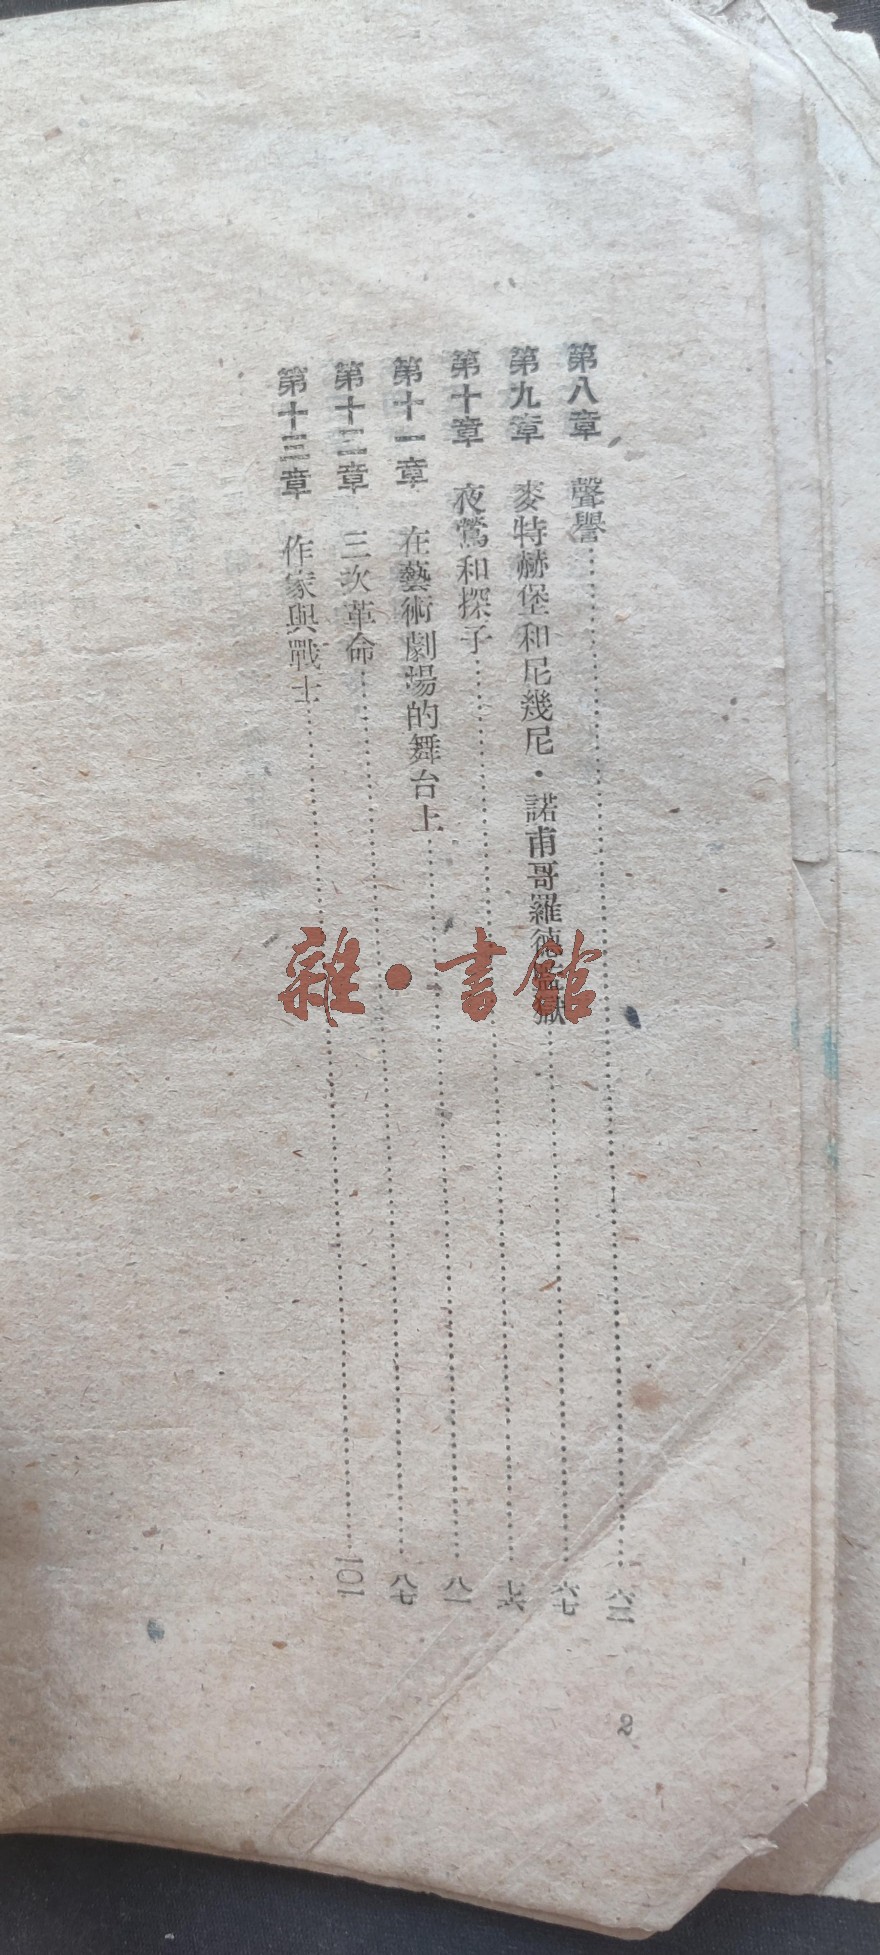 第八章 聲譽……六二
第九章 麥特赫堡和尼幾尼·諾甫哥羅德監獄……六七
第十章 夜鶯和探子……七六
第十一章 在藝術劇場的舞台上……八一
第十二章 三次革命……八七
第十三章 作家與戰士……一〇一
2
雜·書館